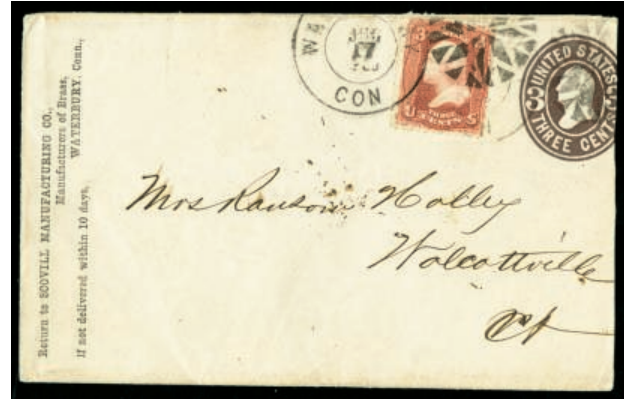 Return to SCOVILL MANUFACTURING CO.,
Manufacturers of Brass,
WATERBURY, Conn.,
If not delivered within 10 days.
WA
17
CON
3
U THREE CENTS S
UNITED STATES
3 3
THREE CENTS
Mrs Ransom Holley
Wolcottville
Ct